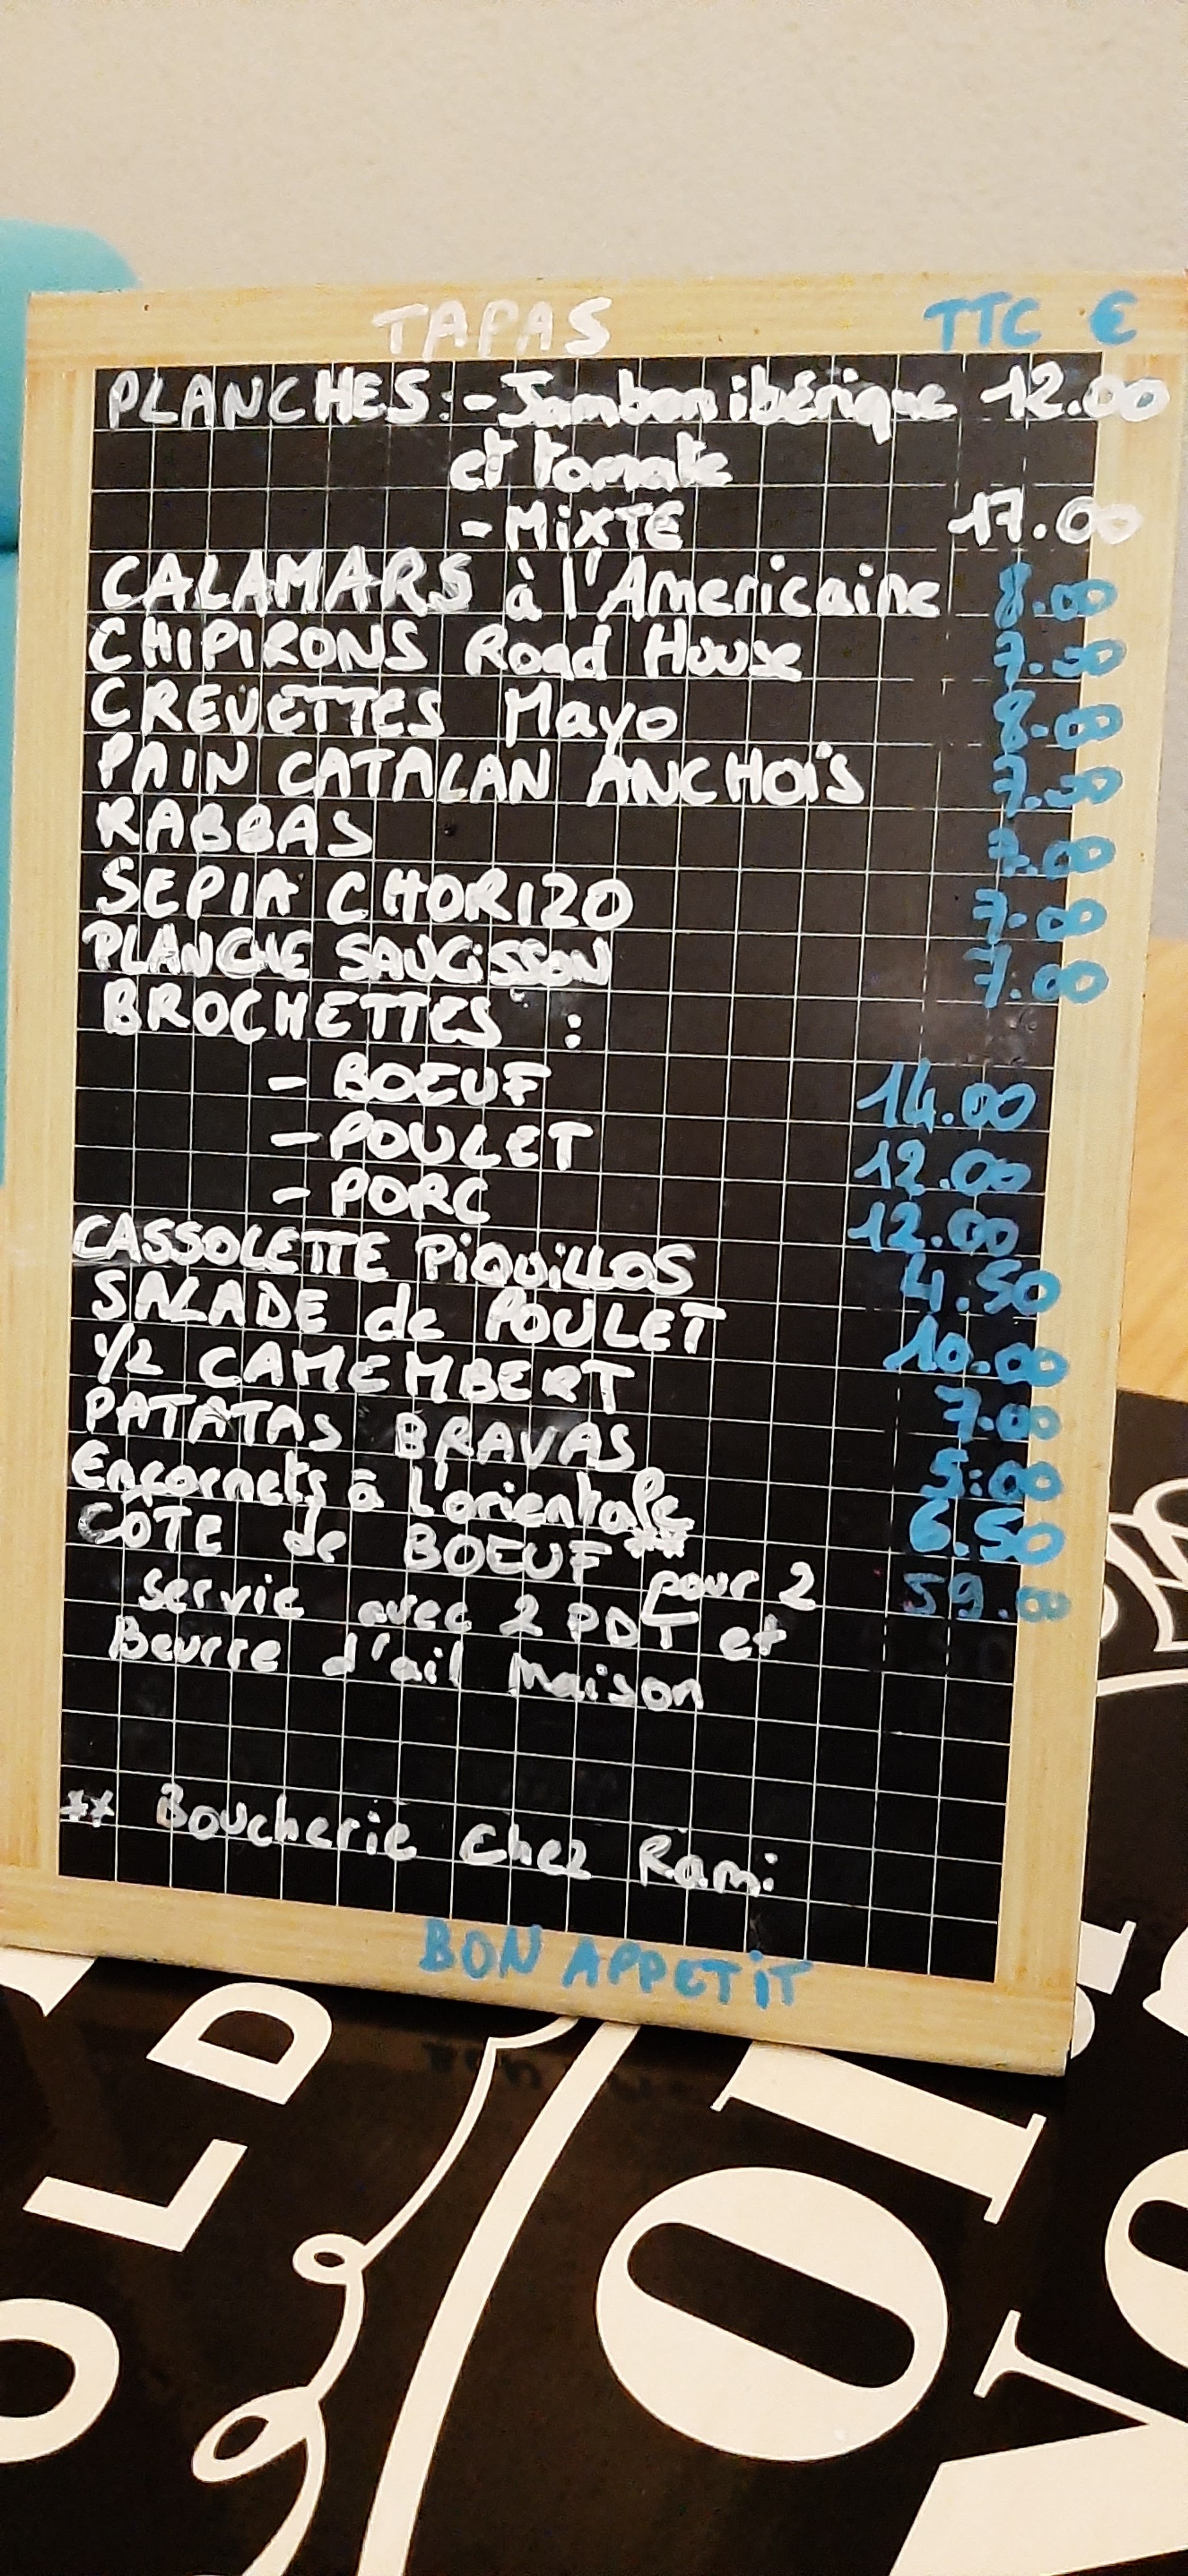 TAPAS TTC €
PLANCHES: - Jambon ibérique 12.00
et tomate
- MiXTE 17.00
CALAMARS à l'Americaine 8.00
CHIPIRONS Road House 7.50
CREVETTES Mayo 8.00
PAIN CATALAN ANCHOIS 7.50
RABBAS 7.00
SEPIA CHORIZO 7.00
PLANCHE SAUCiSSON 7.00
BROCHETTES :
- BOEUF 14.00
- POULET 12.00
- PORC 12.00
CASSOLETTE PiQUiLLOS 4.50
SALADE de POULET 10.00
1/2 CAMEMBERT 7.00
PATATAS BRAVAS 5:00
Encornets à L'orientale 6.50
COTE de BOEUF ** pour 2 59.00
servie avec 2 PDT et
Beurre d'ail maison
** Boucherie Chez Rami
BON APPETiT
OLD